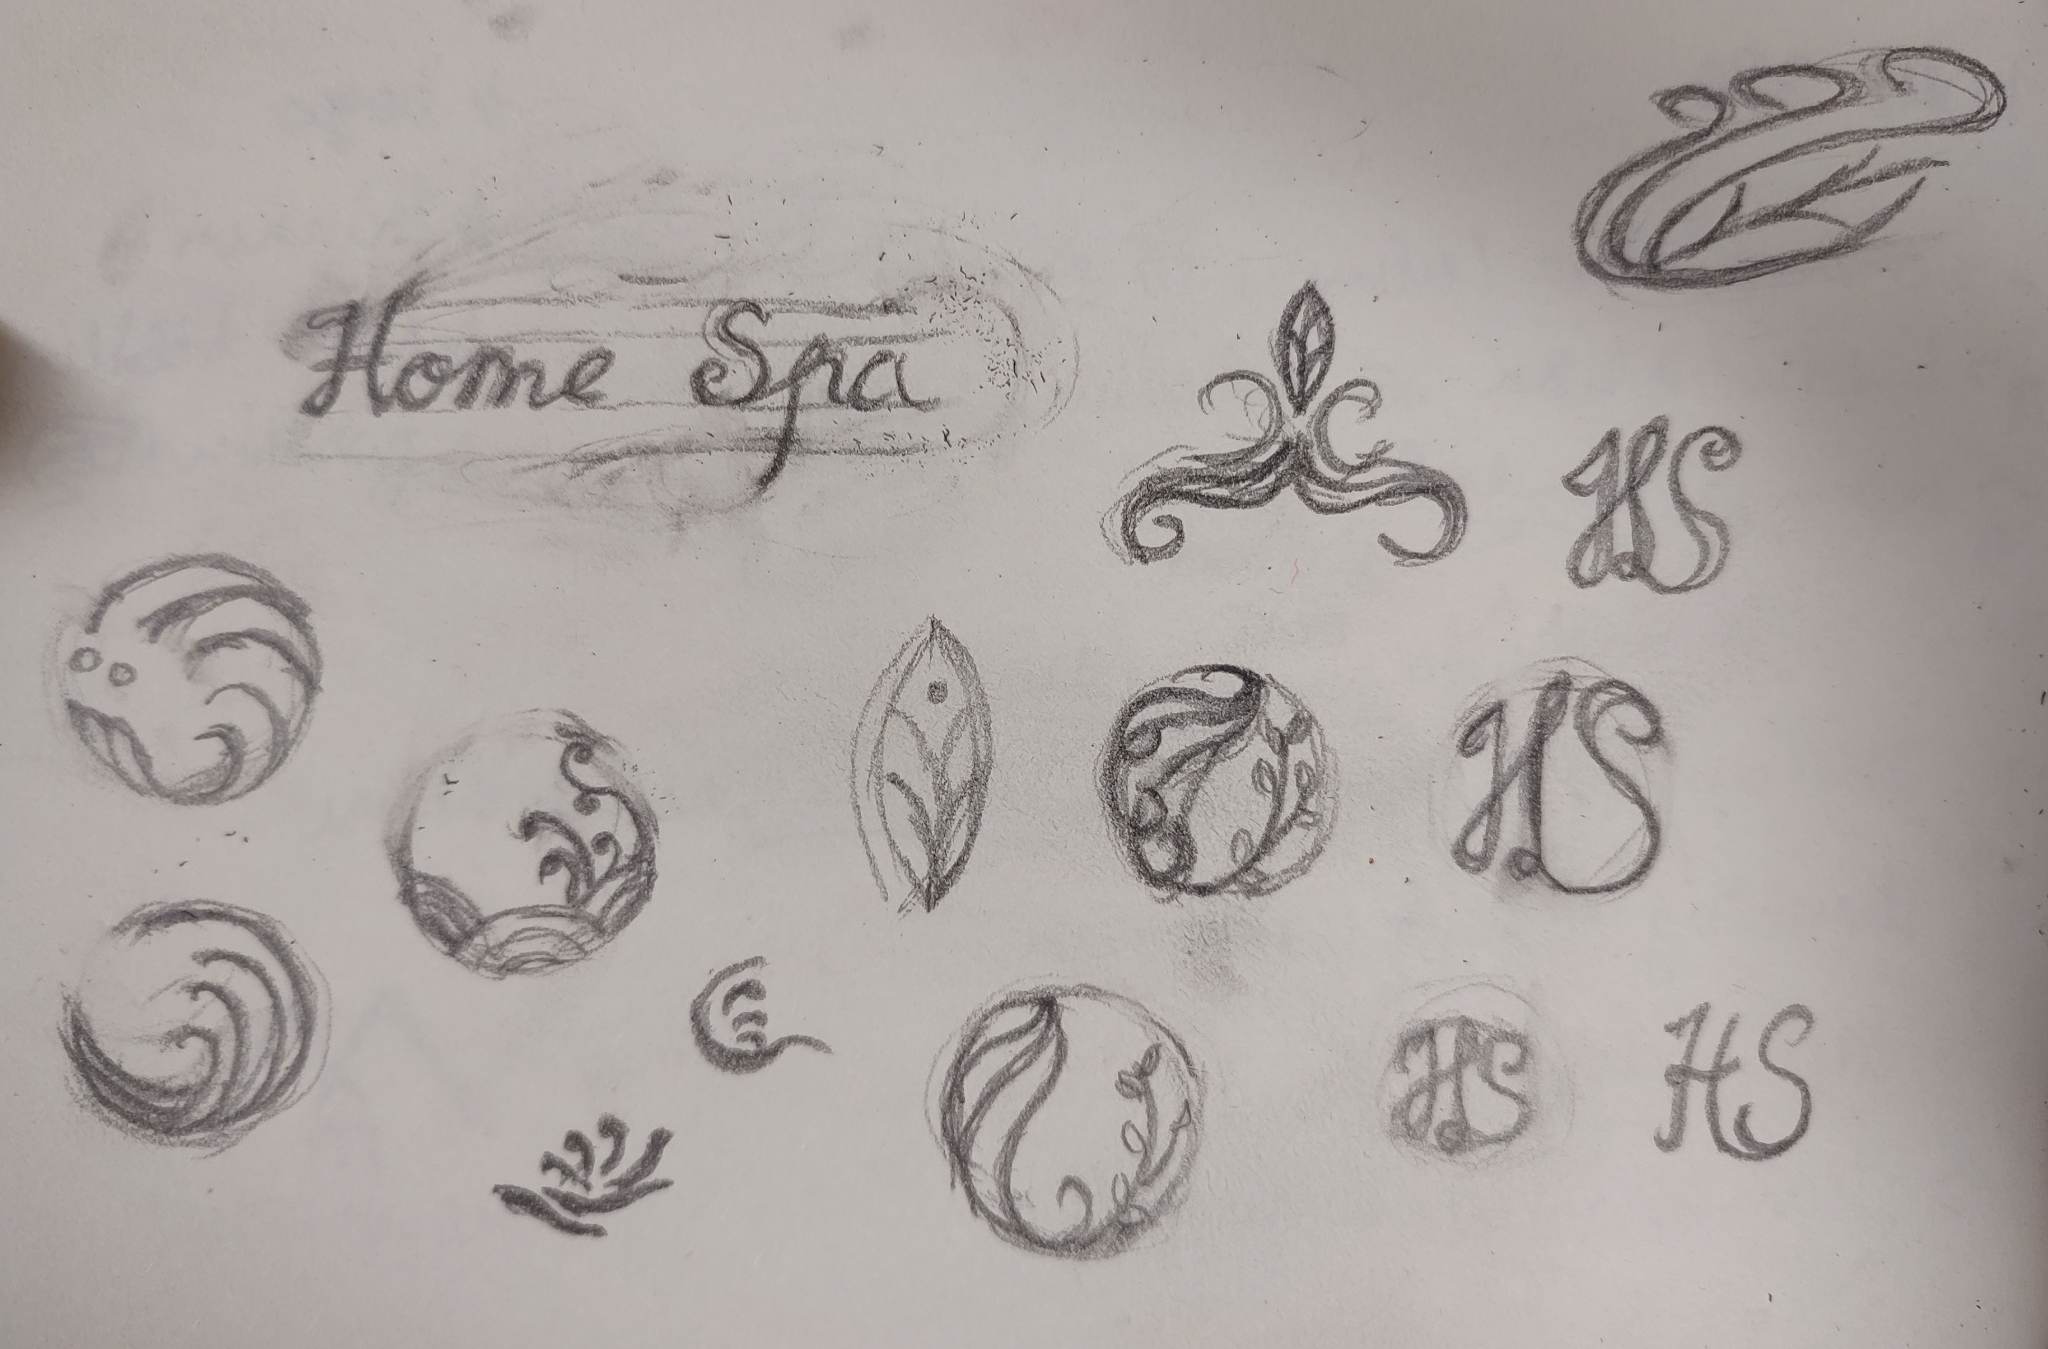 Home Spa
HS
HS
HS
HS